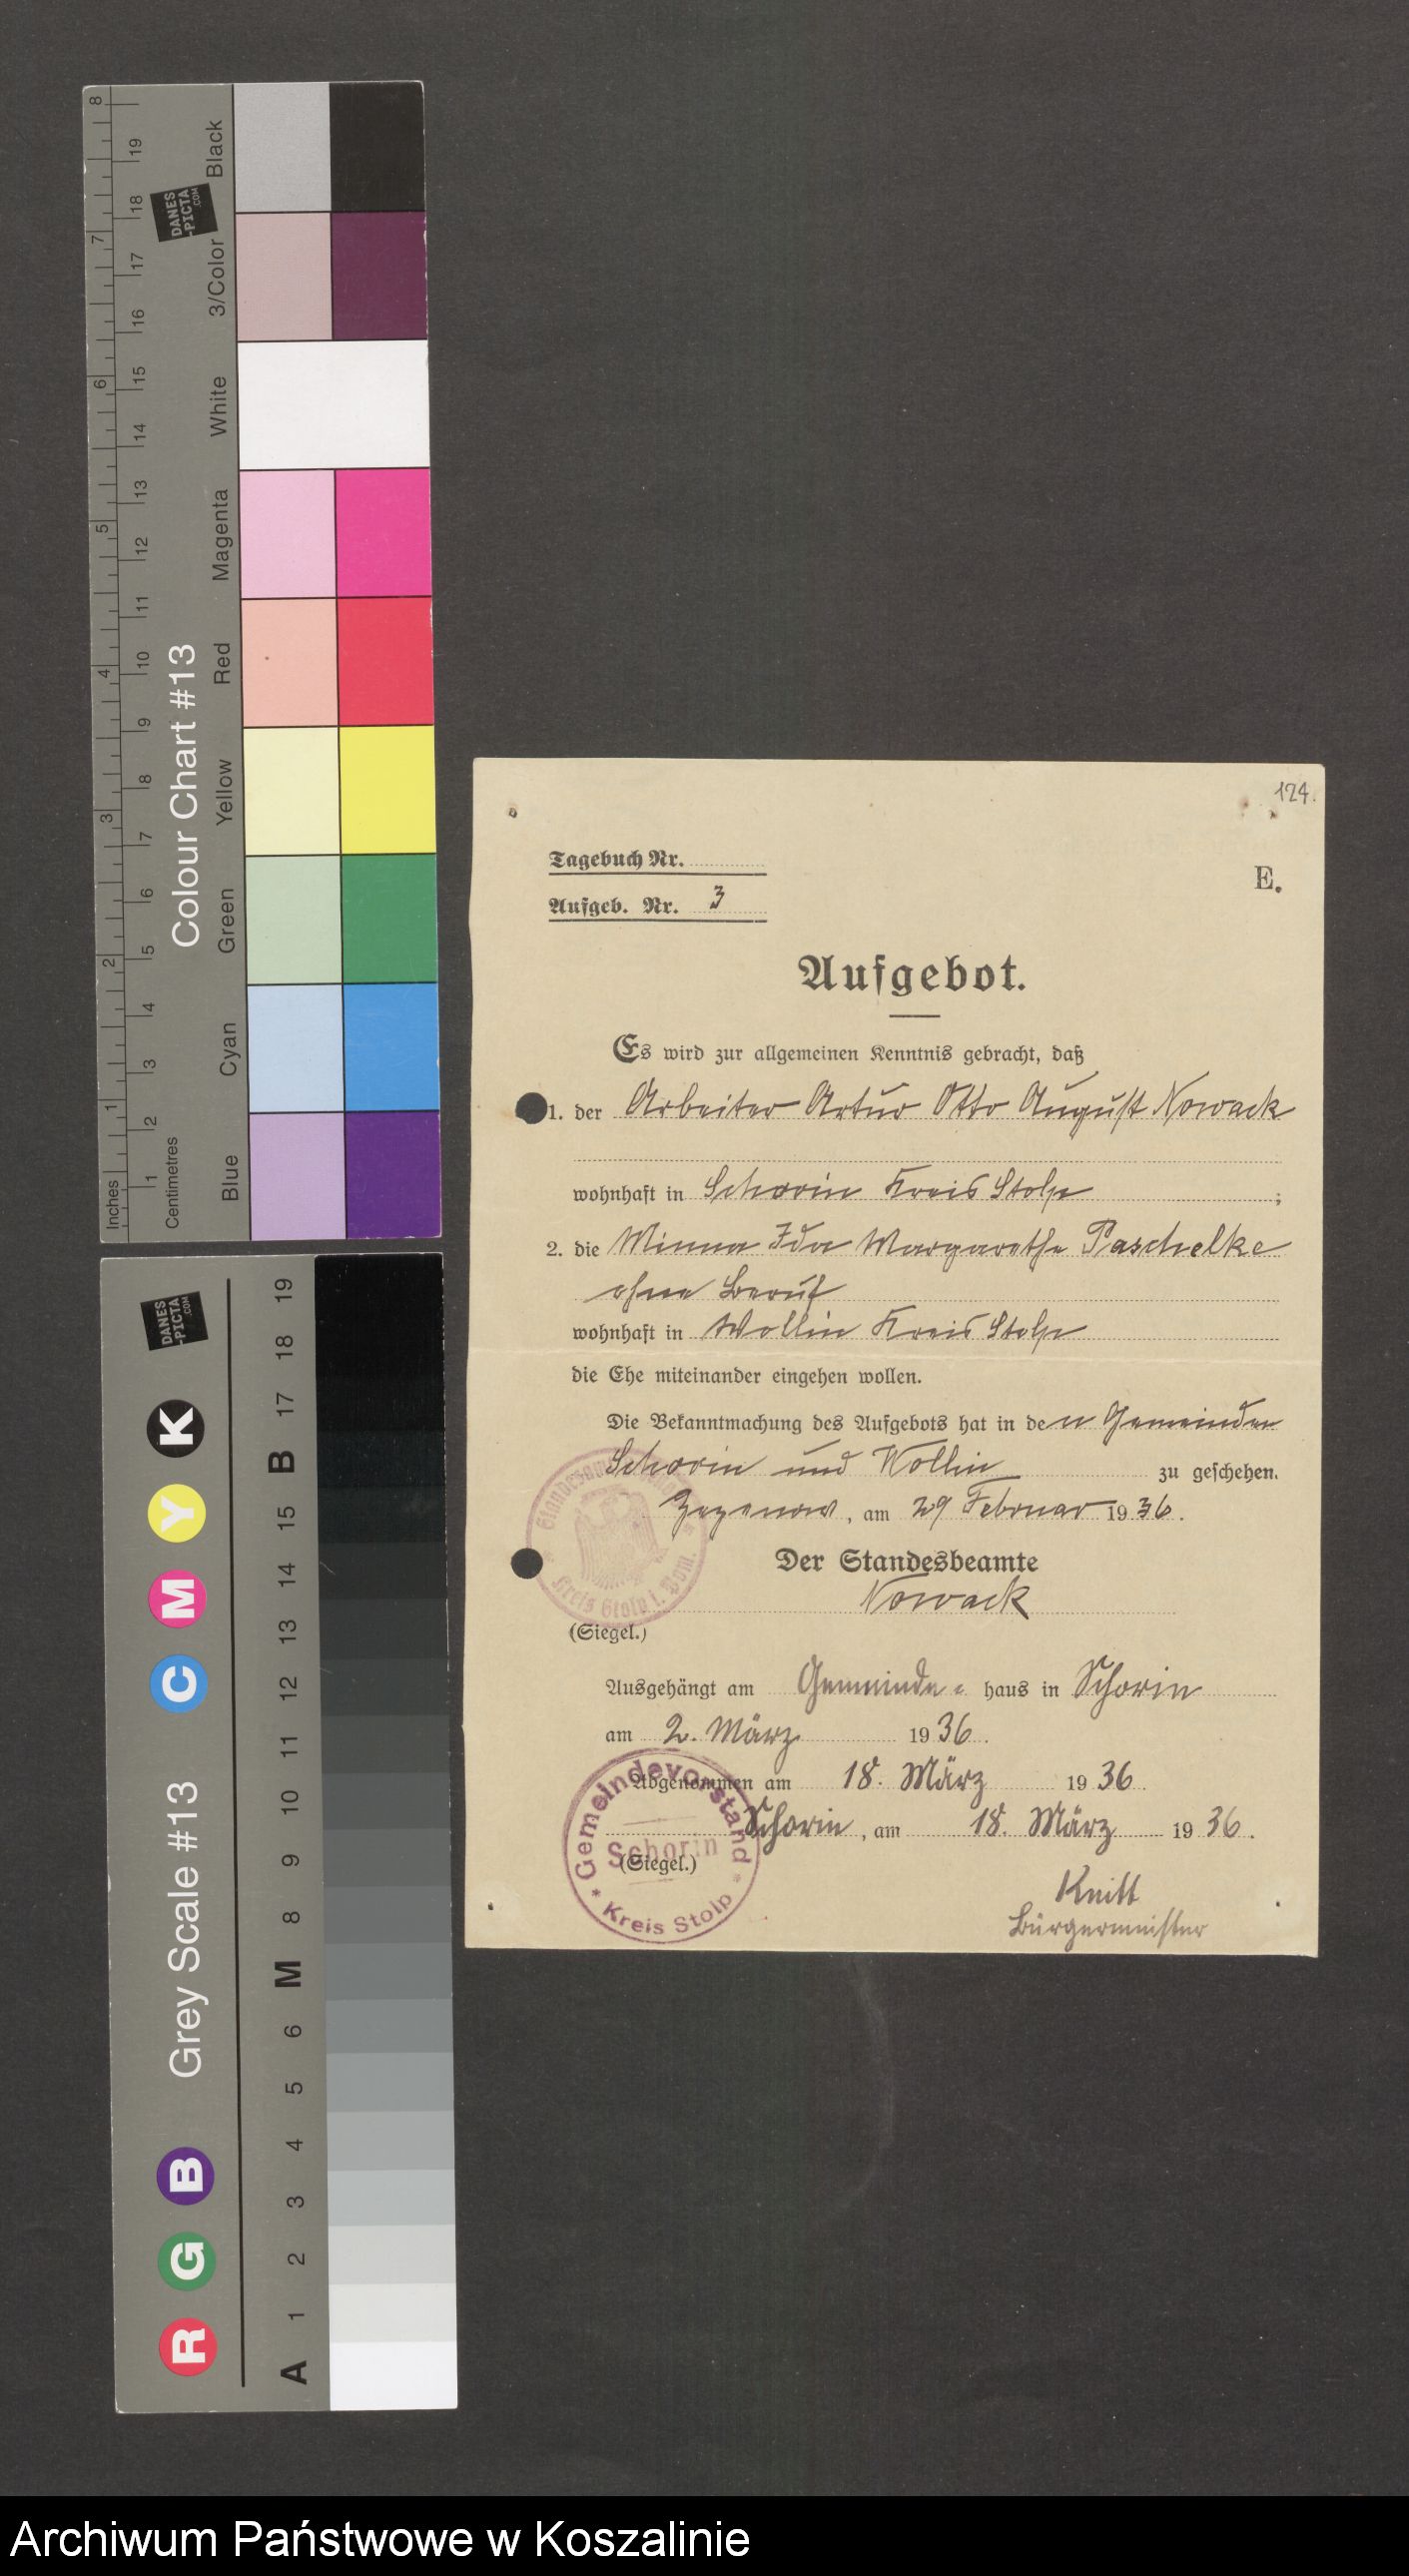 124.
Tagebuch Nr.
E.
Aufgeb. Nr. 3
Aufgebot.
Es wird zur allgemeinen Kenntnis gebracht, daß
1. der Arbeiter Artur Otto August Nowack
wohnhaft in Schorin Kreis Stolp ;
2. die Minna Ida Margarethe Paschelke
ohne Beruf
wohnhaft in Wollin Kreis Stolp
die Ehe miteinander eingehen wollen.
Die Bekanntmachung des Aufgebots hat in den Gemeinden
Schorin und Wollin zu geschehen.
Zezenow, am 29 Februar 1936.
Der Standesbeamte
Nowack
(Siegel.)
Kreis Stolp i. Pom.
Ausgehängt am Gemeinde- haus in Schorin
am 2. März 1936.
Abgenommen am 18. März 1936.
Schorin, am 18. März 1936.
(Siegel.)
Gemeindevorstand
Schorin
* Kreis Stolp *
Knitt
Bürgermeister
Inches
1 2 3 4 5 6 7 8
Centimetres
1 2 3 4 5 6 7 8 9 10 11 12 13 14 15 16 17 18 19
Colour Chart #13
Blue Cyan Green Yellow Red Magenta White 3/Color Black
DANES
-PICTA
.COM
Grey Scale #13
R G B C M Y K
A 1 2 3 4 5 6 M 8 9 10 11 12 13 14 15 B 17 18 19
DANES
-PICTA
.COM
Archiwum Państwowe w Koszalinie